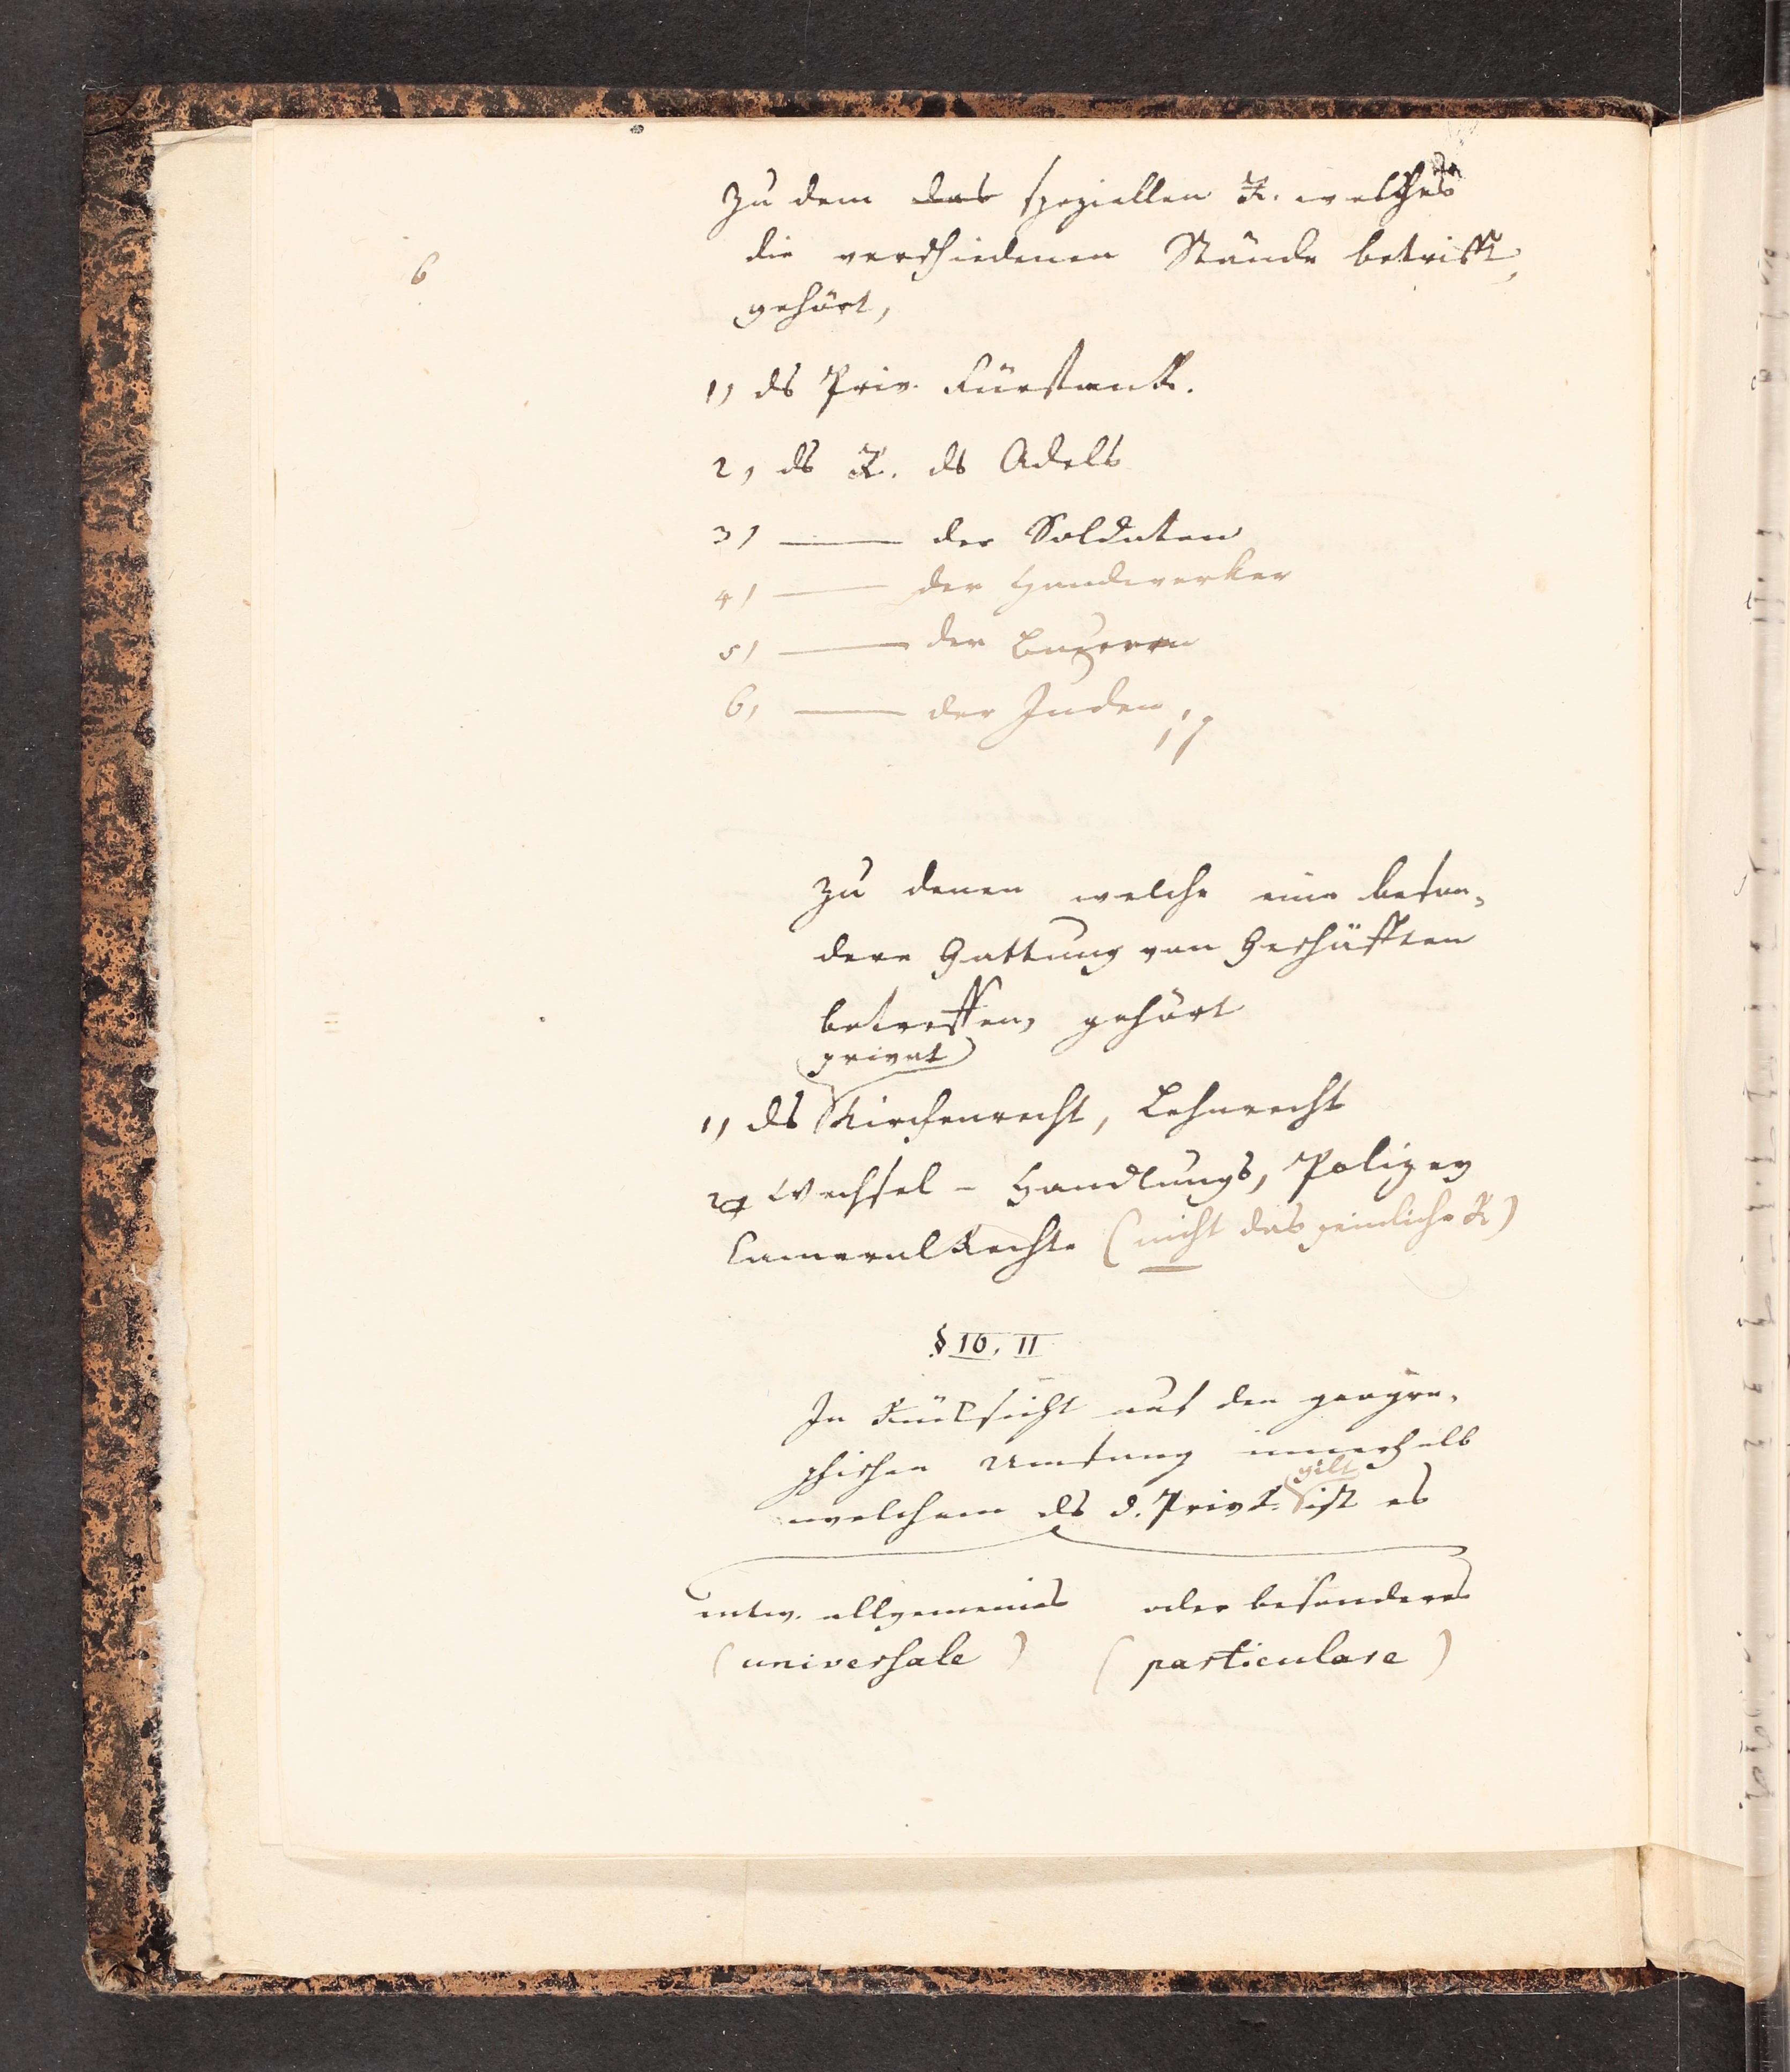 6
Zu dem das speziellen R. welches
die verschiedenen Stände betrifft,
gehört,
1) ds Priv. FürstenR.
2, ds R. ds Adels
3) —— der Soldaten
4) —— der Handwerker
5) —— der Bauern
6, —— der Juden,
Zu denen welche eine beson-
dere Gattung von Geschäfften
betreffen, gehört
privat
1) ds Kirchenrecht, Lehnrecht
2, Wechsel - Handlungs, Polizey
CameralRechte (nicht das peinliche R)
§ 10. II
In Rücksicht auf den geogra-
phischen Umfang innerhalb
gilt
welchem ds d. PrivR. ist es
entw. allgemeines oder besonderes
(universale) (particulare)